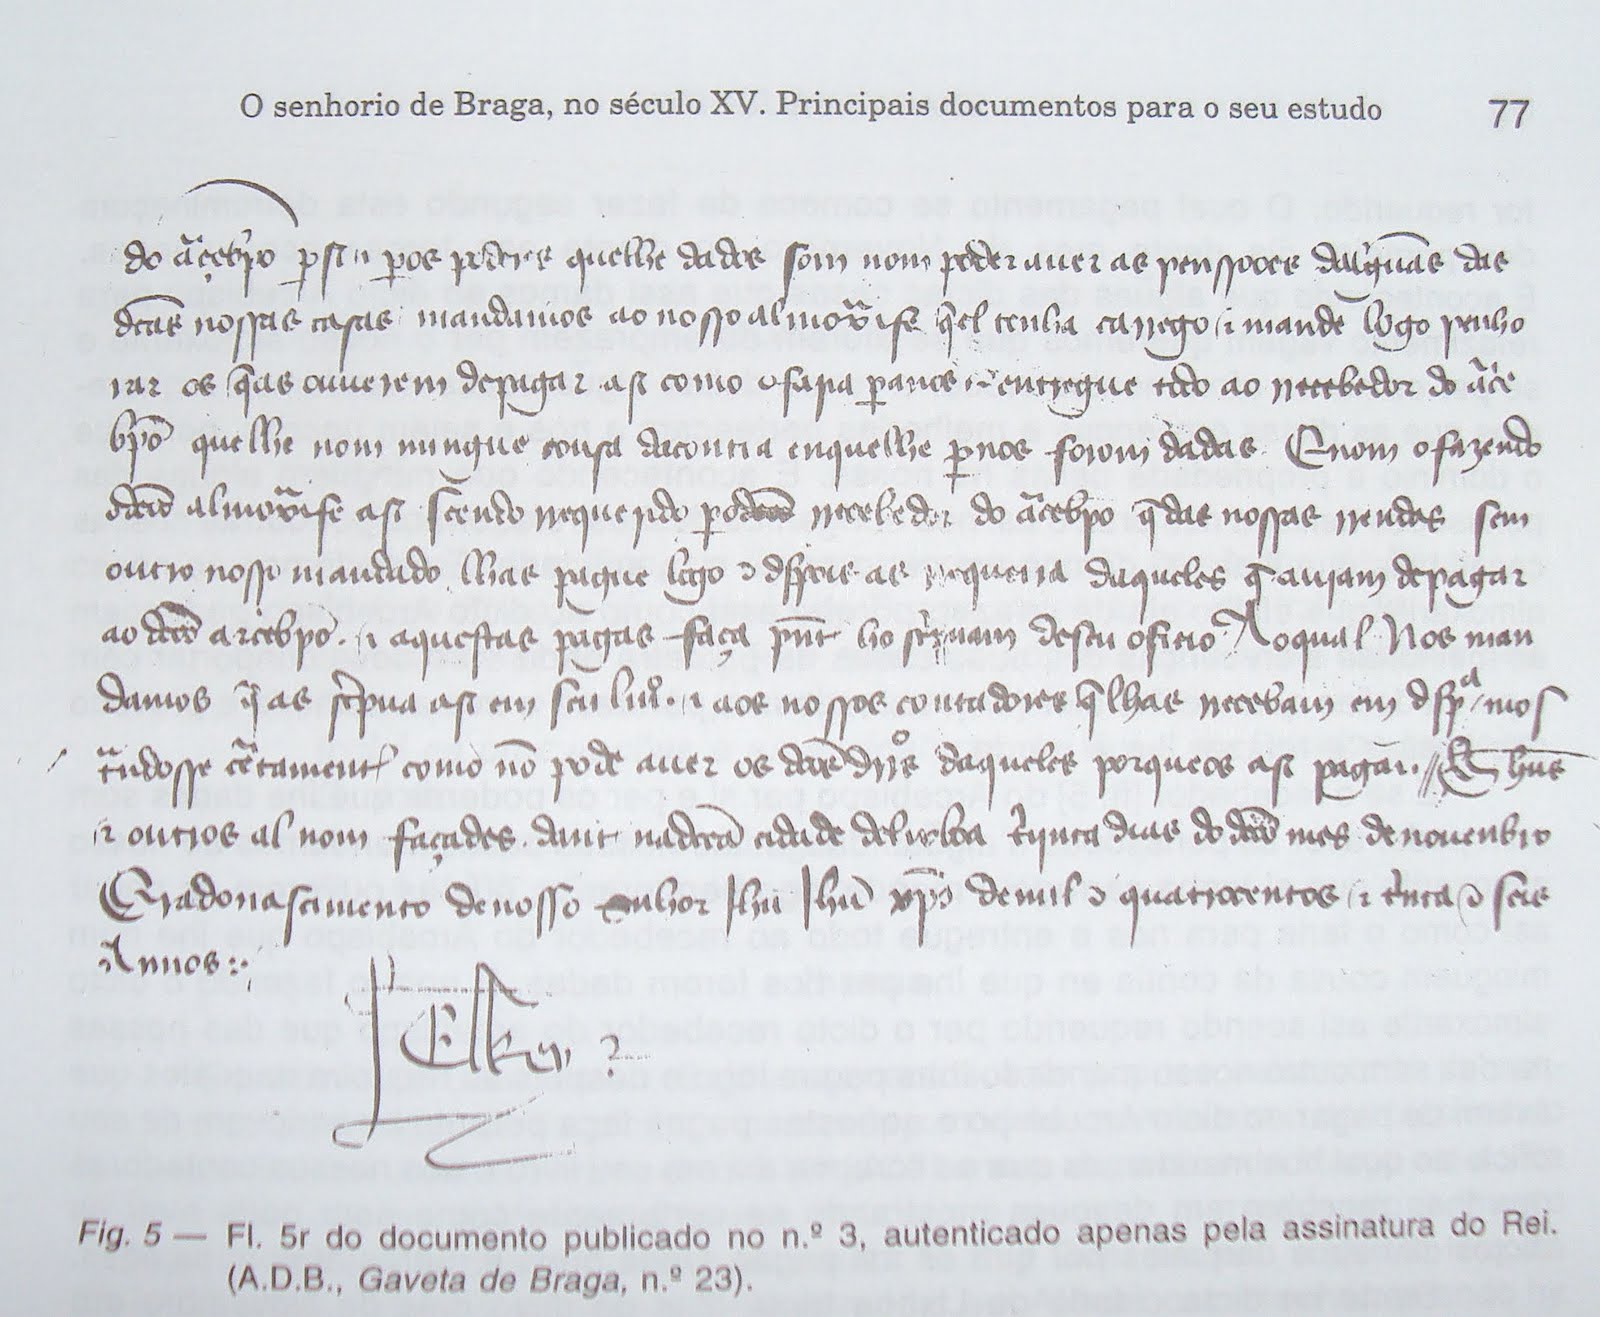 O senhorio de Braga, no século XV. Principais documentos para o seu estudo 77
do arcebpo per si e per os poderes quelhe dados som nom poder auer as penssooes dalguãs das
dctas nossas casas mandamos ao nosso almoxarife que el tenha carrego e mande logo penho
rar os que as ouuerem depagar asi como o faria pera nos e entregue todo ao recebedor do arce
bpō quelhe nom mingue cousa da contia enquelhe per nos forom dadas. E nom o fazendo
o dcto almoxarife asi seendo requerido per o dcto recebedor do arcebpo que das nossas rendas sem
outro nosso mandado lhas pague logo e despois as requeira daqueles que auiam depagar
ao dcto arcebpō. e aquestas pagas faça perante ho scripuam deseu oficio Ao qual Nos man
damos que as scripua asi em seu liuro. e aos nossos contadores que lhas recebam em despesa mos
trandosse certamente como nō pode auer os dctos drros daqueles porqueos asi pagar. // E huūs
e outros al nom façades. dante na dcta cidade de lixboa trijnta dias do dcto mes de nouenbro
Era do nascimento de nosso Senhor Jhū Jhū xpō de mil e quatrocentos e trinta e seis
Annos:.
ElRey
Fig. 5 — Fl. 5r do documento publicado no n.º 3, autenticado apenas pela assinatura do Rei.
(A.D.B., Gaveta de Braga, n.º 23).